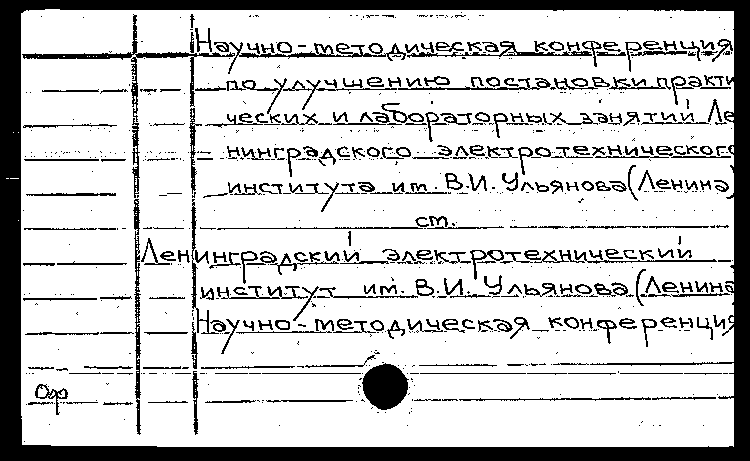 Научно-методическая конференция
по улучшению постановки практи
ческих и лабораторных занятий Ле
нинградского электротехнического
института им. В.И. Ульянова (Ленина)
ст.
Ленинградский электротехнический
институт им. В.И. Ульянова (Ленина
Научно-методическая конференция